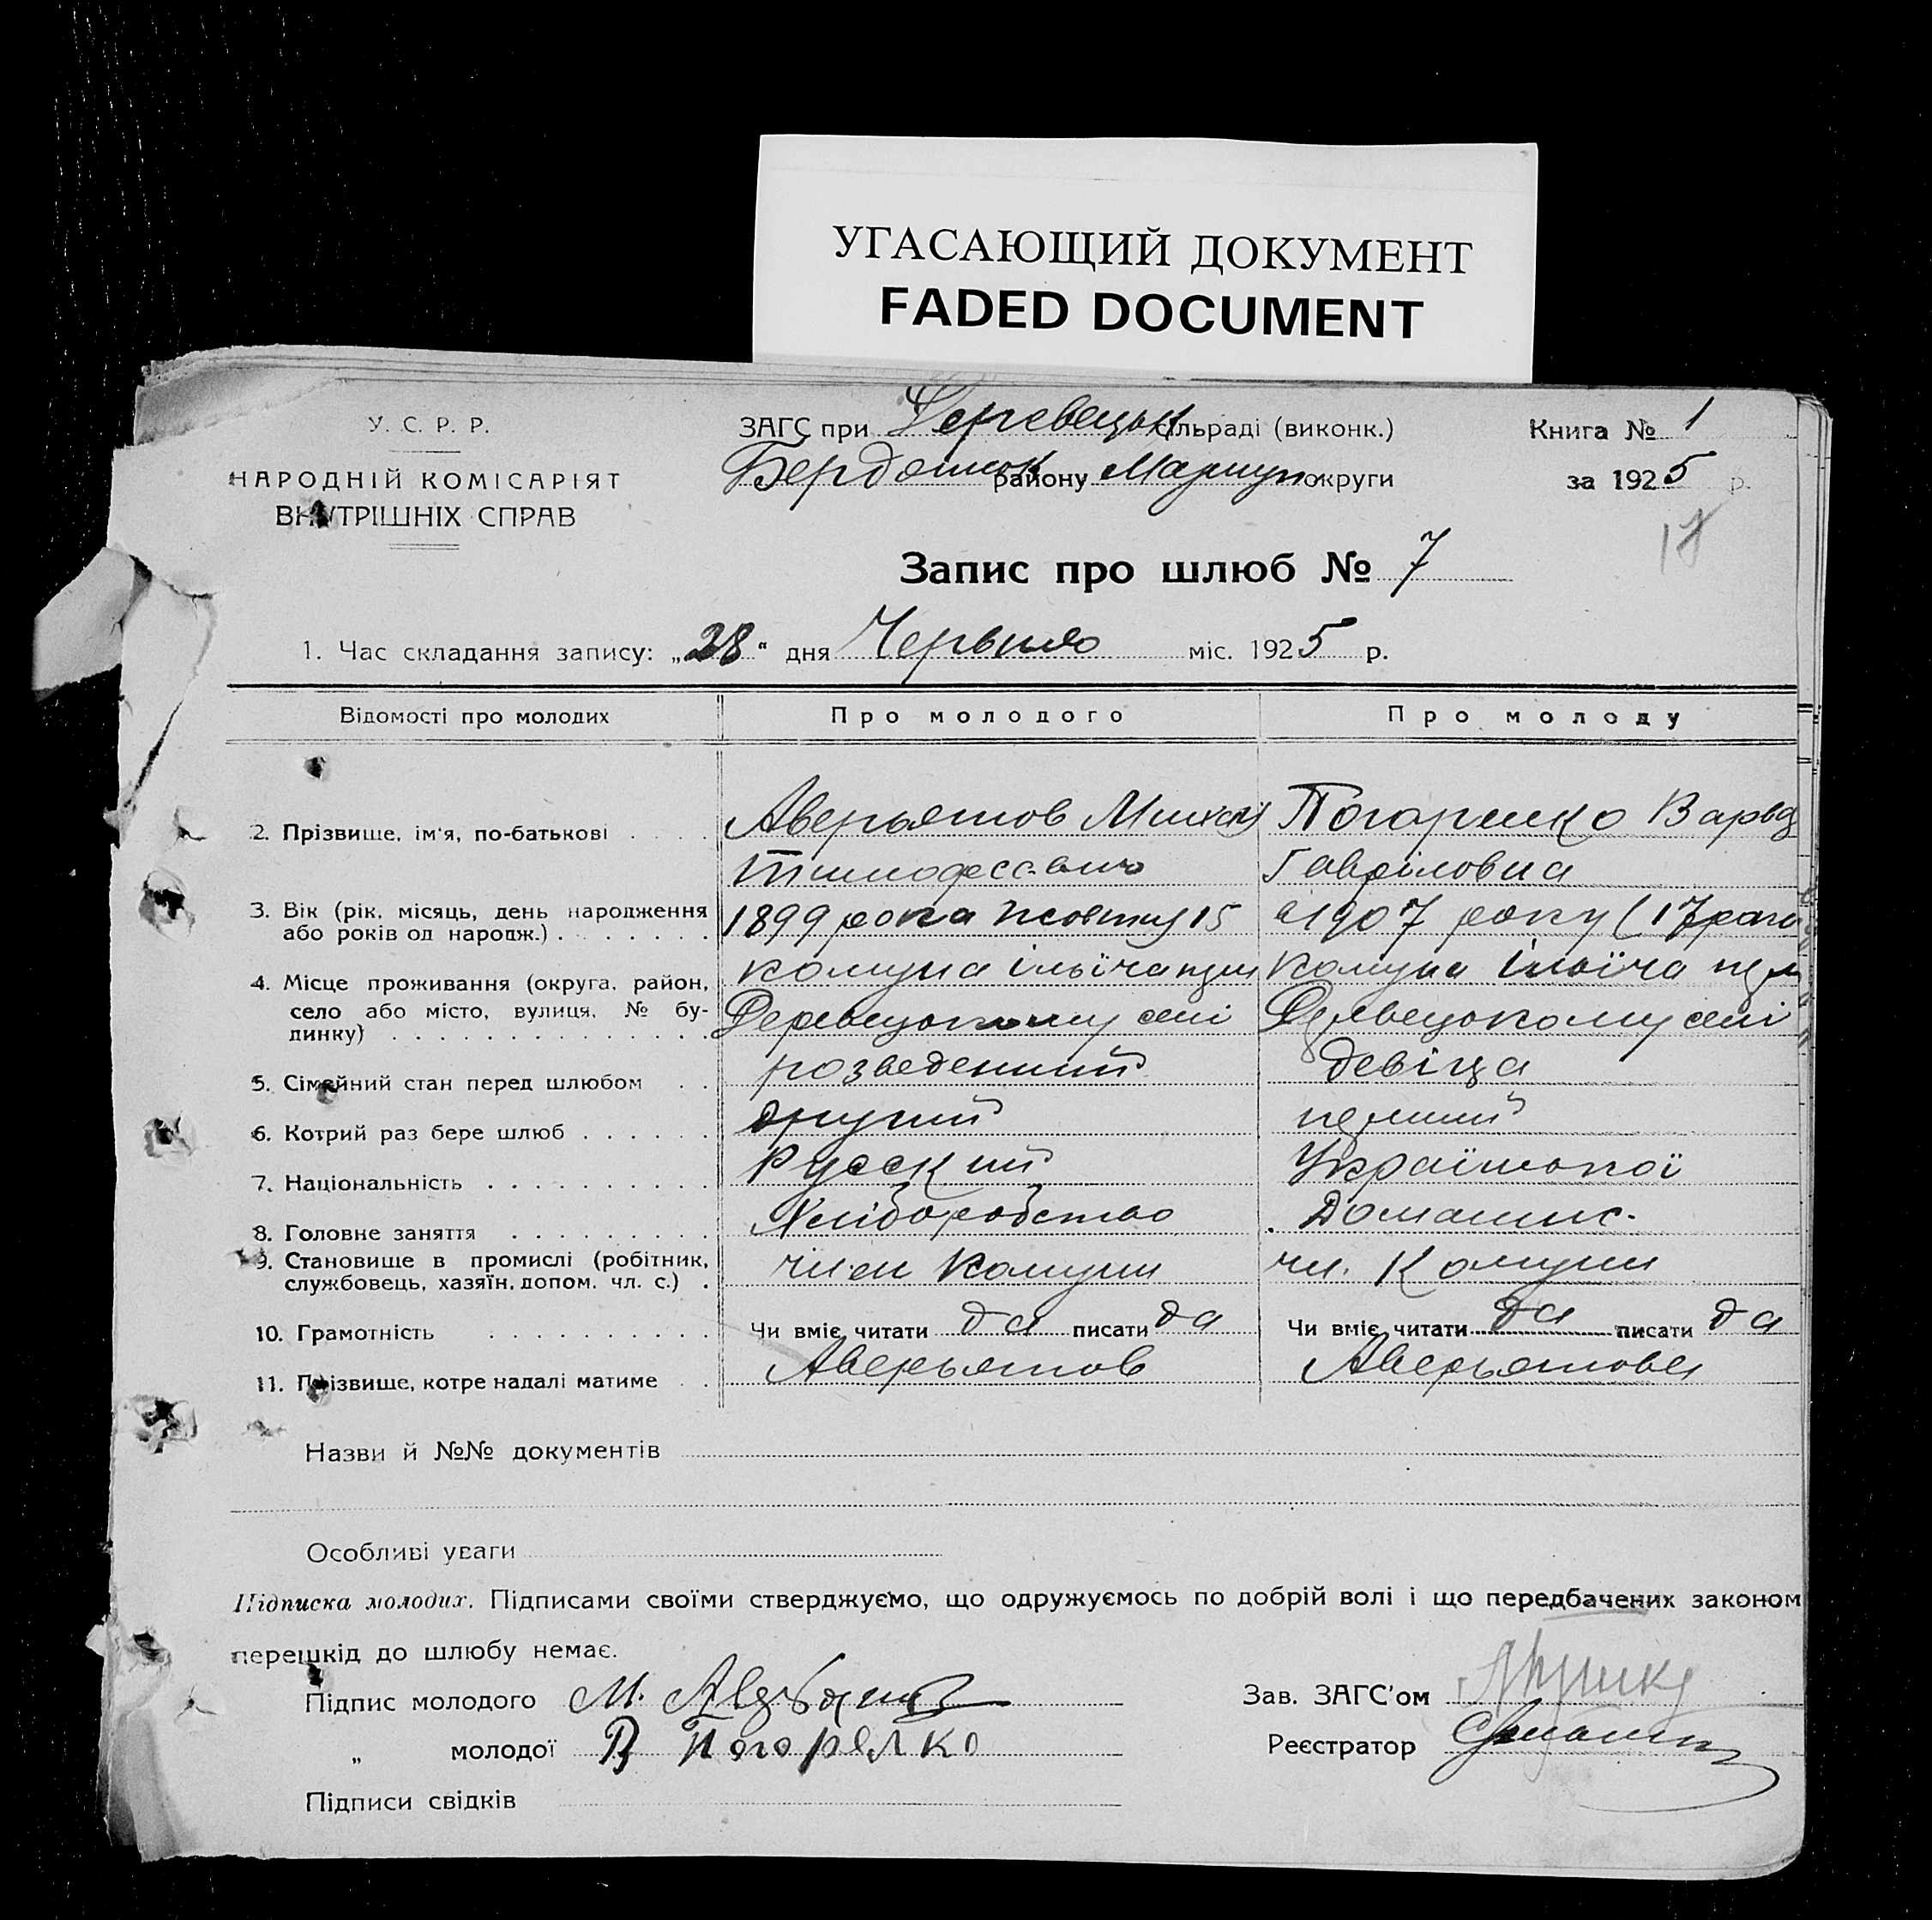 УГАСАЮЩИЙ ДОКУМЕНТ
FADED DOCUMENT
У. С. Р. Р.
НАРОДНІЙ КОМІСАРІЯТ
ВНУТРІШНІХ СПРАВ
ЗАГС при сільраді (виконк.)
району Мариуп. округи
Книга № 1
за 1925 р.
17
Запис про шлюб № 7
1. Час складання запису: „28“ дня міс. 1925 р.
Відомості про молодих Про молодого Про молоду
2. Прізвище, ім'я, по-батькові Аверьянов Погорелко
Гавріловна
3. Вік (рік, місяць, день народження або років од народж.) 1899 рока 15 1907 року (17
4. Місце проживання (округа, район, село або місто, вулиця, № будинку) комуна ільїча при Комуна Ільїча при
селі селі
5. Сімейний стан перед шлюбом розведенний девіца
6. Котрий раз бере шлюб другий первий
7. Національність Русский Української
8. Головне заняття Хліборобство Домашнє.
9. Становище в промислі (робітник, службовець, хазяїн, допом. чл. с.) член Комуни чл. Комуни
10. Грамотність Чи вміє читати да писати да Чи вміє читати да писати да
11. Прізвище, котре надалі матиме Аверьянов Аверьянова
Назви й №№ документів
Особливі уваги
Підписка молодих. Підписами своїми стверджуємо, що одружуємось по добрій волі і що передбачених законом
перешкід до шлюбу немає.
Підпис молодого М.
„ молодої В Погорелко
Підписи свідків
Зав. ЗАГС'ом
Реєстратор